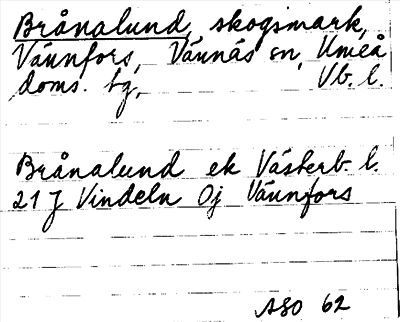 Brånalund, skogsmark,
Vännfors, Vännäs sn, Umeå
doms. tg, Vb. l.
Brånalund ek Västerb. l.
21 J Vindeln Oj Vännfors
ASO 62